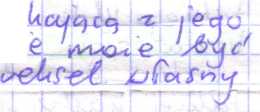 kająca z jego
e może być
weksel własny